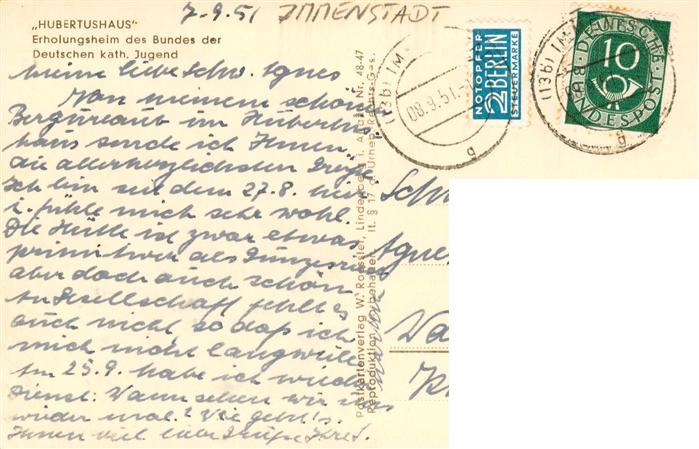 7.9.51 IMMENSTADT
„HUBERTUSHAUS“
Erholungsheim des Bundes der
Deutschen kath. Jugend
Meine liebe Schw. Agnes
Von meinem schönen
Bergurlaub im Hubertus
haus sende ich Ihnen
die allerherzlichsten Grüße
Ich bin seit dem 27.8. hier
u. fühle mich sehr wohl.
Die Hütte ist zwar etwas
primitiver als
aber doch auch schön
An Gesellschaft fehlt es
auch nicht so daß ich
mich nicht langweile
Am 25.9. habe ich wieder
Dienst. Wann sehen wir uns
wieder mal? Wie geht's
Ihnen viel liebe Grüße Ihre
Postkartenverlag W. Roessler, Lindenberg i. Allgäu Nr. 48-47
Reproduktion vorbehalten lt. § 17 d. Urheb.-Rechts-Ges.
(13b) IM
08.9.51.
g
NOTOPFER
2 BERLIN
STEUERMARKE
(13b) IM
g
DEUTSCHE
BUNDESPOST
10
Schw
Agnes